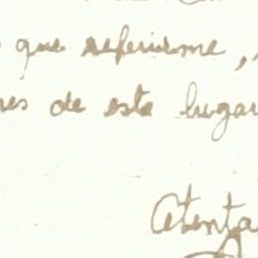 que referirme,
res de este lugar
Atenta